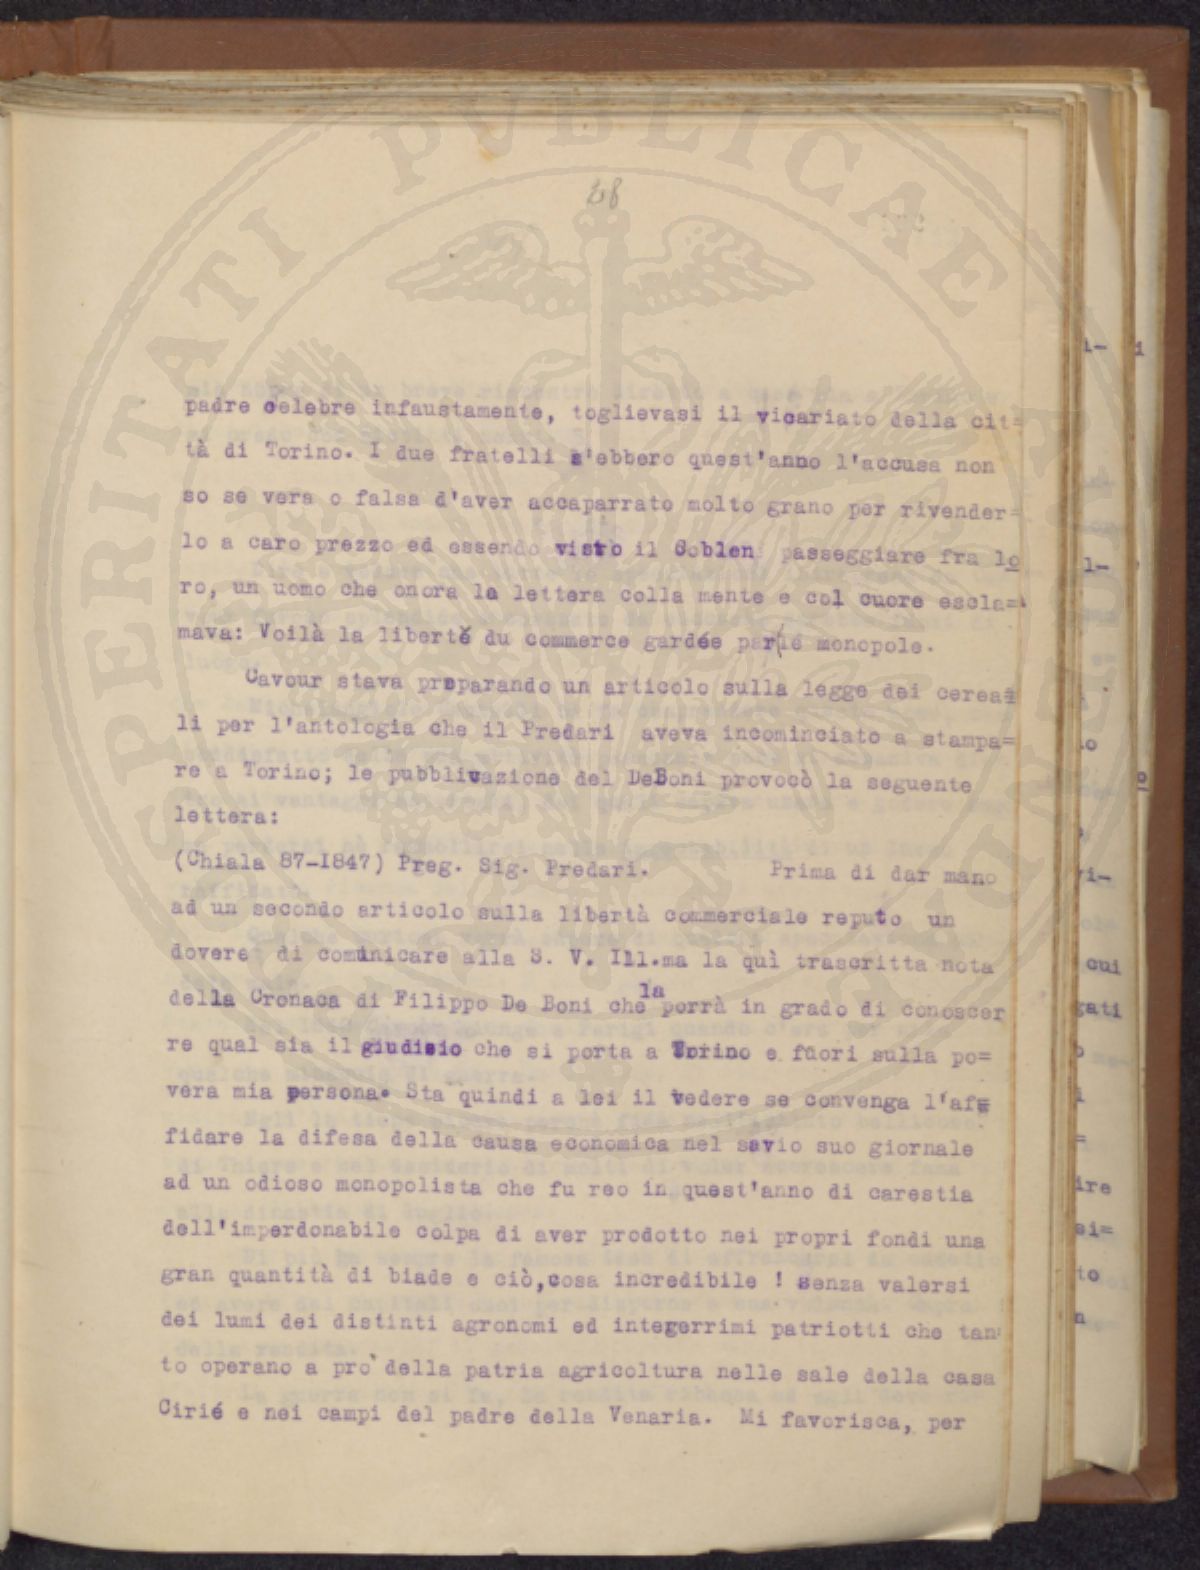 SPERITATI PUBLICAE
28
padre celebre infaustamente, toglievasi il vicariato della cit=
tà di Torino. I due fratelli s'ebbero quest'anno l'accusa non
so se vera o falsa d'aver accaparrato molto grano per rivender=
lo a caro prezzo ed essendo visto il Coblen passeggiare fra lo
ro, un uomo che onora le lettera colla mente e col cuore escla=
mava: Voilà la liberté du commerce gardée par le monopole.
Cavour stava preparando un articolo sulla legge dei cereai
li per l'antologia che il Predari aveva incominciato a stampa=
re a Torino; le pubblivazione del DeBoni provocò la seguente
lettera:
(Chiala 87-I847) Preg. Sig. Predari. Prima di dar mano
ad un secondo articolo sulla libertà commerciale reputo un
dovere di comunicare alla S. V. Ill.ma la quì trascritta nota
della Cronaca di Filippo De Boni che la porrà in grado di conoscer
re qual sia il giudisio che si porta a Torino e fuori sulla po=
vera mia persona. Sta quindi a lei il vedere se convenga l'af=
fidare la difesa della causa economica nel savio suo giornale
ad un odioso monopolista che fu reo in quest'anno di carestia
dell'imperdonabile colpa di aver prodotto nei propri fondi una
gran quantità di biade e ciò,cosa incredibile ! senza valersi
dei lumi dei distinti agronomi ed integerrimi patriotti che tan
to operano a pro' della patria agricoltura nelle sale della casa
Cirié e nei campi del padre della Venaria. Mi favorisca, per